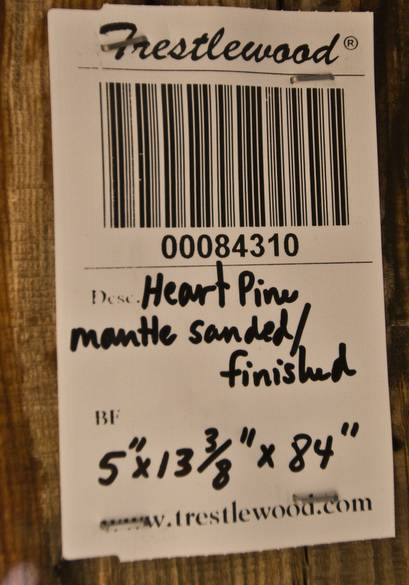 Trestlewood®
00084310
Desc. Heart Pine
mantle sanded/
finished
BF
5"x13 3/8"x 84"
www.trestlewood.com